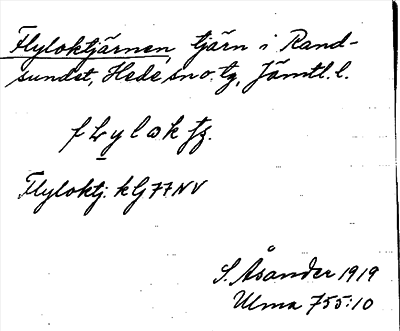 Flyloktjärnen, tjärn i Rand-
sundet, Hede sn o. tg, Jämtl. l.
flylok tj.
Flyloktj. kG77NV
S. Åsander 1919
Ulma 755:10